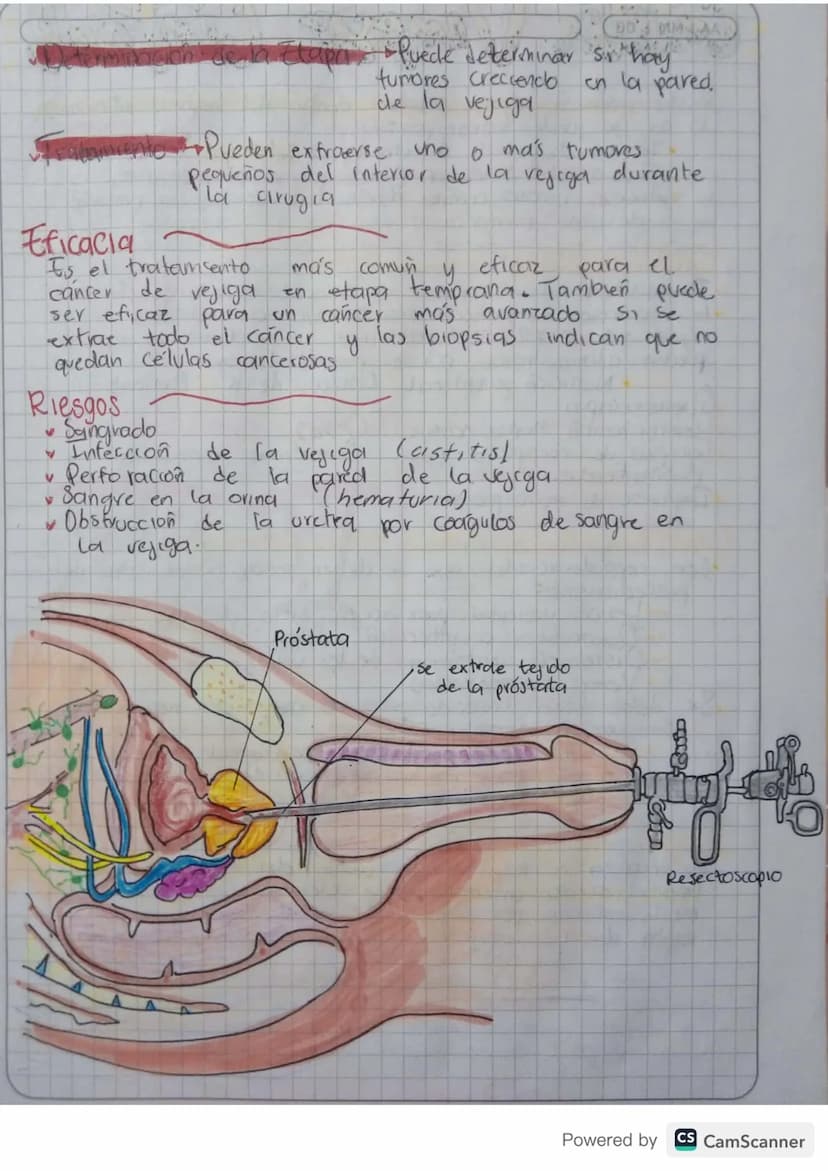 Determinación de la Etapa → Puede determinar si hay
tumores creciendo en la pared.
de la vejiga
Tratamiento → Pueden extraerse uno o más tumores
pequeños del interior de la vejiga durante
la cirugia
Eficacia
Es el tratamiento más común y eficaz para el
cáncer de vejiga en etapa temprana. También puede
ser eficaz para un cáncer más avanzado si se
extrae todo el cáncer y las biopsias indican que no
quedan células cancerosas
Riesgos
Sangrado
Infección de la vejiga (cistitis)
Perforación de la pared de la vejiga
Sangre en la orina (hematuria)
Obstrucción de la uretra por coágulos de sangre en
la vejiga.
Próstata
se extrae tejido
de la próstata
Resectoscopio
Powered by CS CamScanner